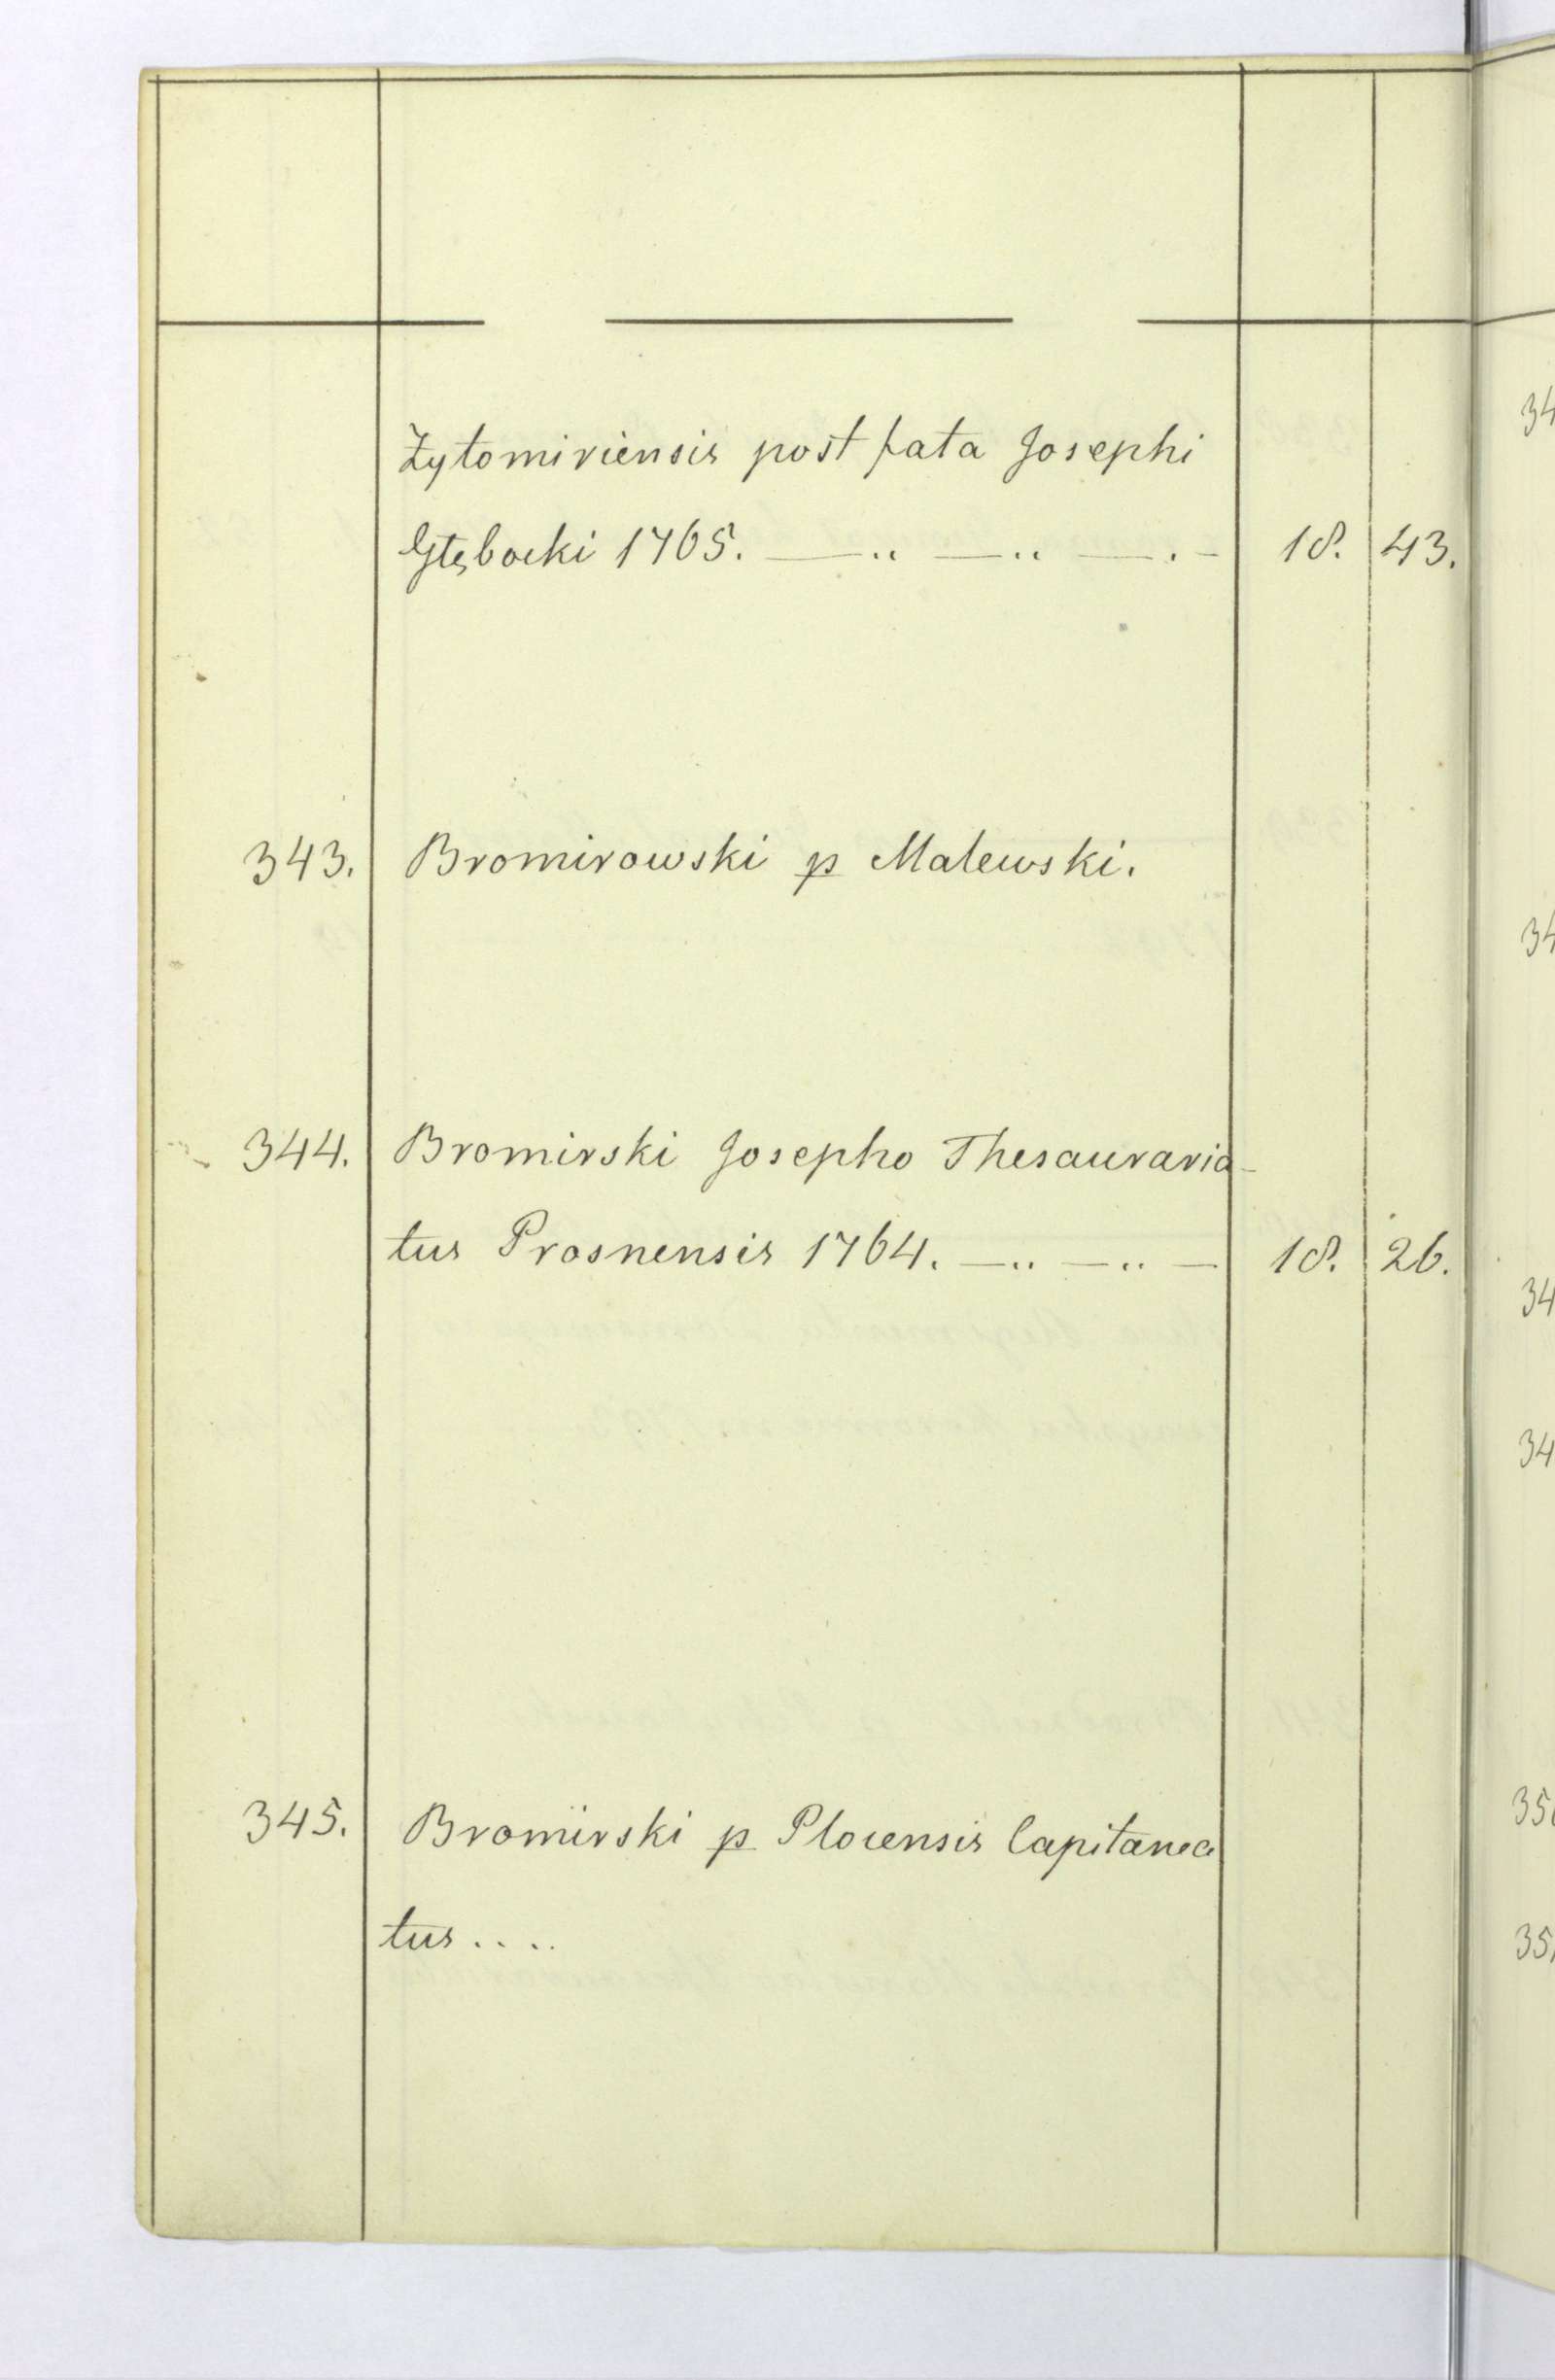 Żytomiriensis post fata Josephi
Głębocki 1765. —.. —.. —. — 18. 43.
343. Bromirowski p Malewski.
344. Bromirski Josepho Thesauraria-
tus Prosnensis 1764. —.. —.. — 18. 26.
345. Bromirski p Plocensis Capitanea
tus....
34
34
34
34
35
35